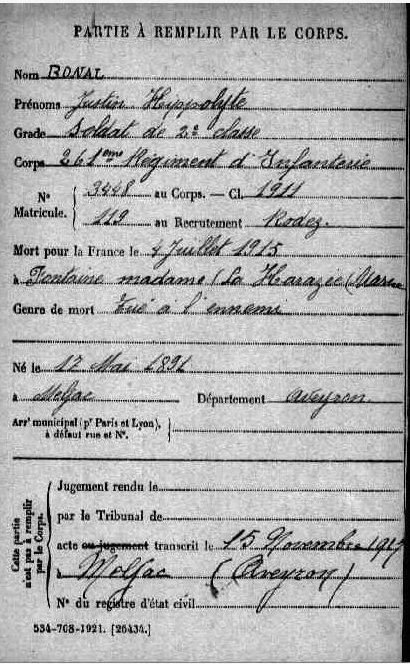 PARTIE À REMPLIR PAR LE CORPS.
Nom BONAL
Prénoms Justin Hippolyte
Grade Soldat de 2e classe
Corps 261eme Régiment d'Infanterie
N° Matricule. { 3448 au Corps. — Cl. 1911
119 au Recrutement Rodez.
Mort pour la France le 4 Juillet 1915
à Fontaine madame (La Harazée) Marne
Genre de mort Tué à l'ennemi
Né le 17 Mai 1891
à Moljac Département Aveyron.
Arrt municipal (pr Paris et Lyon), à défaut rue et N°. {
Cette partie n'est pas à remplir par le Corps.
Jugement rendu le
par le Tribunal de
acte ou jugement transcrit le 15 Novembre 1917
à Moljac (Aveyron)
N° du registre d'état civil
534-708-1921. [26434.]